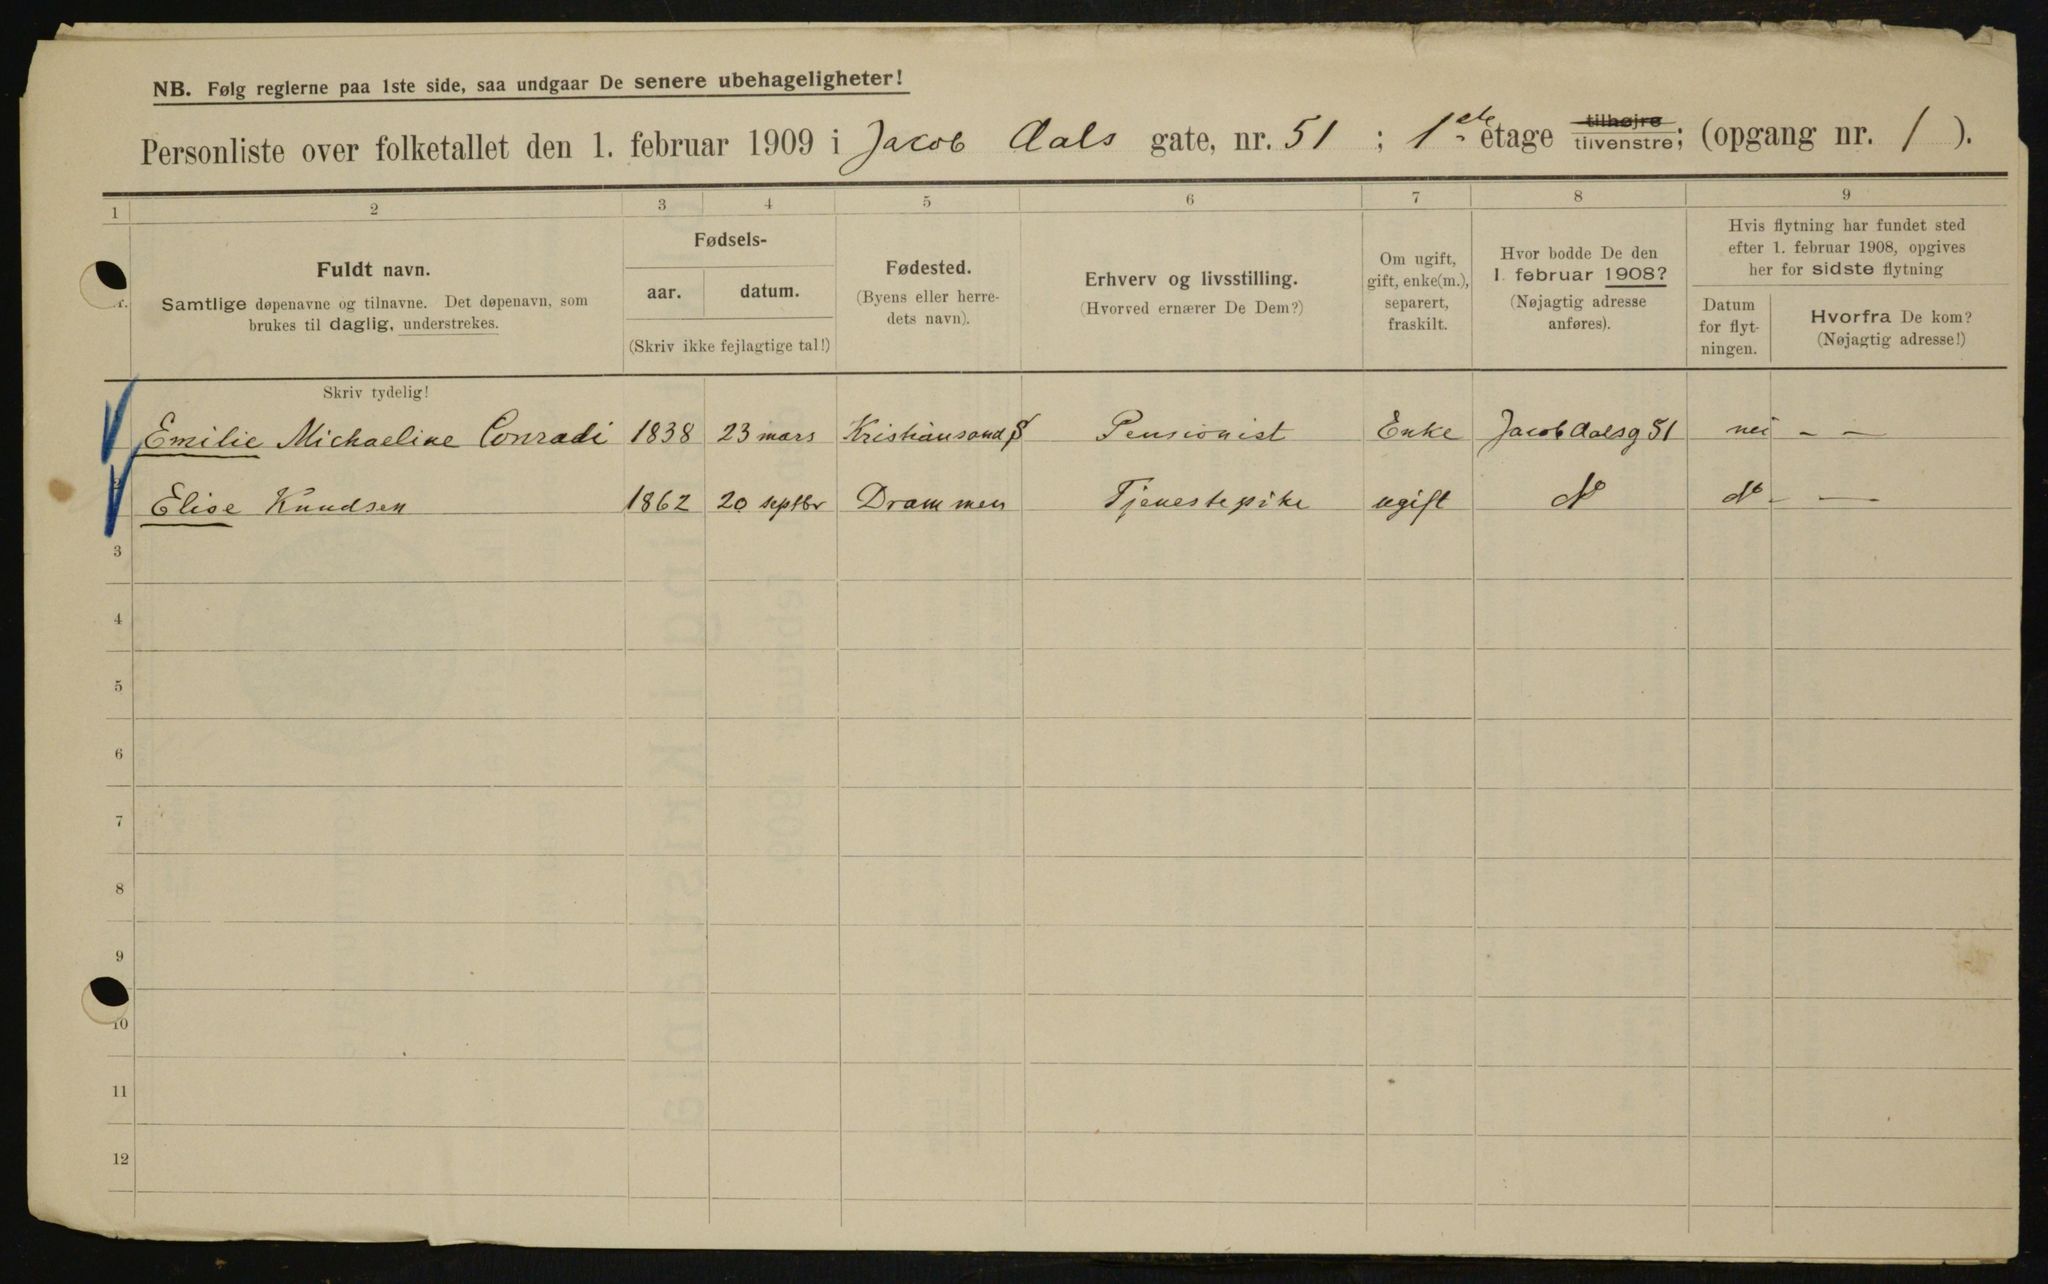 NB. Følg reglerne paa 1ste side, saa undgaar De senere ubehageligheter!
Personliste over folketallet den 1. februar 1909 i Jacob Aals gate, nr. 51 ; 1ste etage tilhøjre tilvenstre; (opgang nr. 1 ).
1 2 3 4 5 6 7 8 9
Fuldt navn.
Samtlige døpenavne og tilnavne. Det døpenavn, som
brukes til daglig, understrekes.
Fødsels-
aar. datum.
(Skriv ikke fejlagtige tal!)
Fødested.
(Byens eller herre-
dets navn).
Erhverv og livsstilling.
(Hvorved ernærer De Dem?)
Om ugift,
gift, enke(m.),
separert,
fraskilt.
Hvor bodde De den
1. februar 1908?
(Nøjagtig adresse
anføres).
Hvis flytning har fundet sted
efter 1. februar 1908, opgives
her for sidste flytning
Datum
for flyt-
ningen.
Hvorfra De kom?
(Nøjagtig adresse!)
Skriv tydelig!
Emilie Michaeline Conradi 1838 23 mars Kristiansand S Pensionist Enke Jacob Aalsg 51 nei - -
2 Elise Knudsen 1862 20 septbr Drammen Tjenestepike ugift do do - -
3
4
5
6
7
8
9
10
11
12